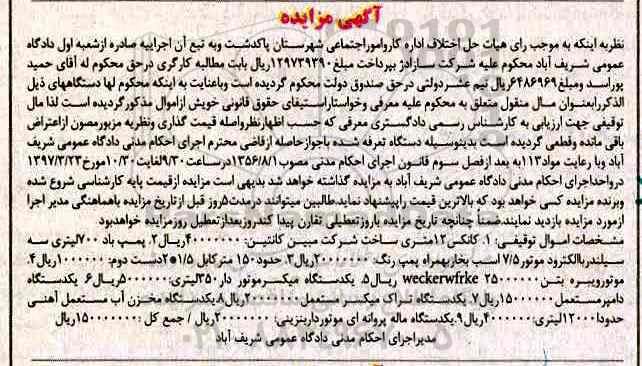 آگهی مزایده
نظربه اینکه به موجب رای هیات حل اختلاف اداره کارواموراجتماعی شهرستان پاکدشت وبه تبع آن اجراییه صادره ازشعبه اول دادگاه
عمومی شریف آباد محکوم علیه شرکت سازادژ بپرداخت مبلغ۱۲۹۷۳۹۳۹۰ریال بابت مطالبه کارگری درحق محکوم له آقای حمید
پوراسد ومبلغ۶۴۸۶۹۶۹ریال نیم عشردولتی درحق صندوق دولت محکوم گردیده است وباعنایت به اینکه محکوم لها دستگاههای ذیل
الذکررابعنوان مال منقول متعلق به محکوم علیه معرفی وخواستاراستیفای حقوق قانونی خویش ازاموال مذکورگردیده است لذا مال
توقیفی جهت ارزیابی به کارشناس رسمی دادگستری معرفی که حسب اظهارنظرواصله قیمت گذاری ونظریه مزبورمصون ازاعتراض
باقی مانده وقطعی گردیده است بدینوسیله دستگاه تعرفه شده باجوازحاصله ازقاضی محترم اجرای احکام مدنی دادگاه عمومی شریف
آباد وبا رعایت مواد۱۱۳به بعد ازفصل سوم قانون اجرای احکام مدنی مصوب۱۳۵۶/۸/۱درساعت ۹/۳۰لغایت۱۰/۳۰مورخ۱۳۹۷/۳/۲۳
درواحداجرای احکام مدنی دادگاه عمومی شریف آباد به مزایده گذاشته خواهد شد بدیهی است مزایده ازقیمت پایه کارشناسی شروع شده
وبرنده مزایده کسی خواهد بود که بالاترین قیمت راپیشنهاد نماید.طالبین میتوانند درمدت۵روز قبل ازتاریخ مزایده باهماهنگی مدیر اجرا
ازمورد مزایده بازدید نمایند.ضمناً چنانچه تاریخ مزایده باروزتعطیلی تقارن پیدا کندروزبعدازتعطیل روزمزایده خواهدبود
مشخصات اموال توقیفی: ۱. کانکس۱۲متری ساخت شرکت مبین کانتین: ۴۰۰۰۰۰۰۰ریال۲. پمپ باد ۷۰۰لیتری سه
سیلندرباالکترود موتور۷/۵ اسب بخاربهمراه پمپ رنگ: ۲۰۰۰۰۰۰۰ریال۳. حدود۱۵۰ مترکابل ۱/۵*۲دست دوم: ۱۰۰۰۰۰۰ریال۴.
موتورویبره بتن weckerwfrke ۲۵۰۰۰۰۰۰ ریال۵. یکدستگاه میکسرموتور دار۳۵۰لیتری:۵۰۰۰۰۰۰ریال۶ یکدستگاه
دامپرمستعمل۱۵۰۰۰۰۰۰ریال۷. یکدستگاه تراک میکسر مستعمل۲۰۰۰۰۰۰۰ریال۸.یکدستگاه مخزن آب مستعمل آهنی
حدودا۱۲۰۰۰لیتری:۴۰۰۰۰۰۰ریال۹.یکدستگاه ماله پروانه ای موتورداربنزینی: ۲۰۰۰۰۰۰۰ریال / جمع کل :۱۵۰۰۰۰۰۰۰ریال
مدیراجرای احکام مدنی دادگاه عمومی شریف آباد